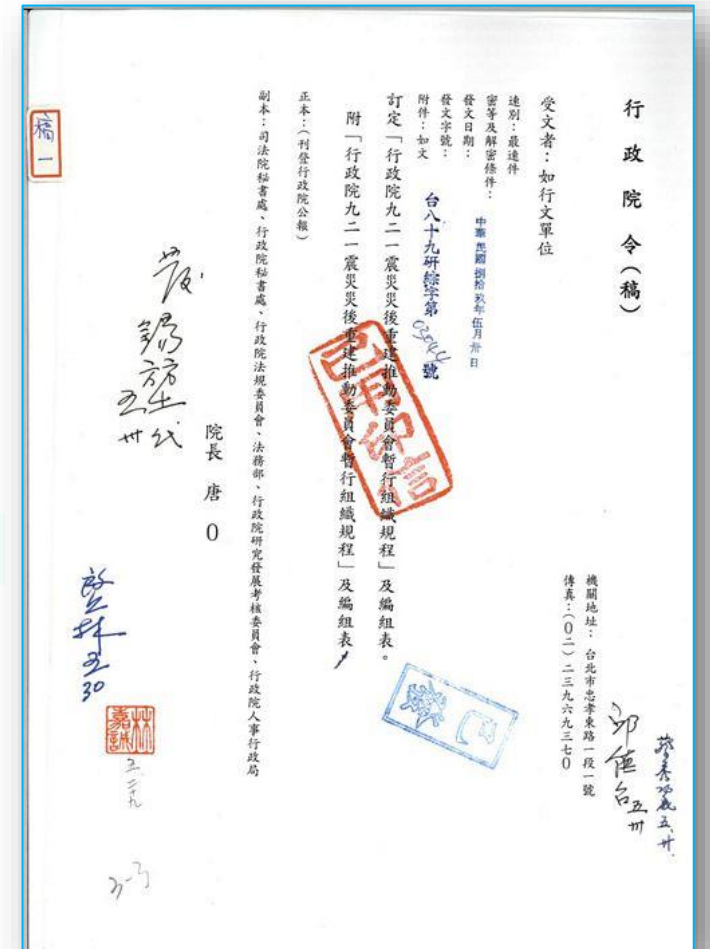 行政院令(稿)
機關地址：台北市忠孝東路一段一號
傳真：(0二)二三九六九三七0
受文者：如行文單位
速別：最速件
密等及解密條件：
發文日期：中華民國捌拾玖年伍月卅日
發文字號：台八十九研綜字第號
附件：如文
訂定「行政院九二一震災災後重建推動委員會暫行組織規程」及編組表。
附「行政院九二一震災災後重建推動委員會暫行組織規程」及編組表
正本：(刊登行政院公報)
副本：司法院秘書處、行政院秘書處、行政院法規委員會、法務部、行政院研究發展考核委員會、行政院人事行政局
院長 唐 0
稿一
林嘉誠
五.二十九